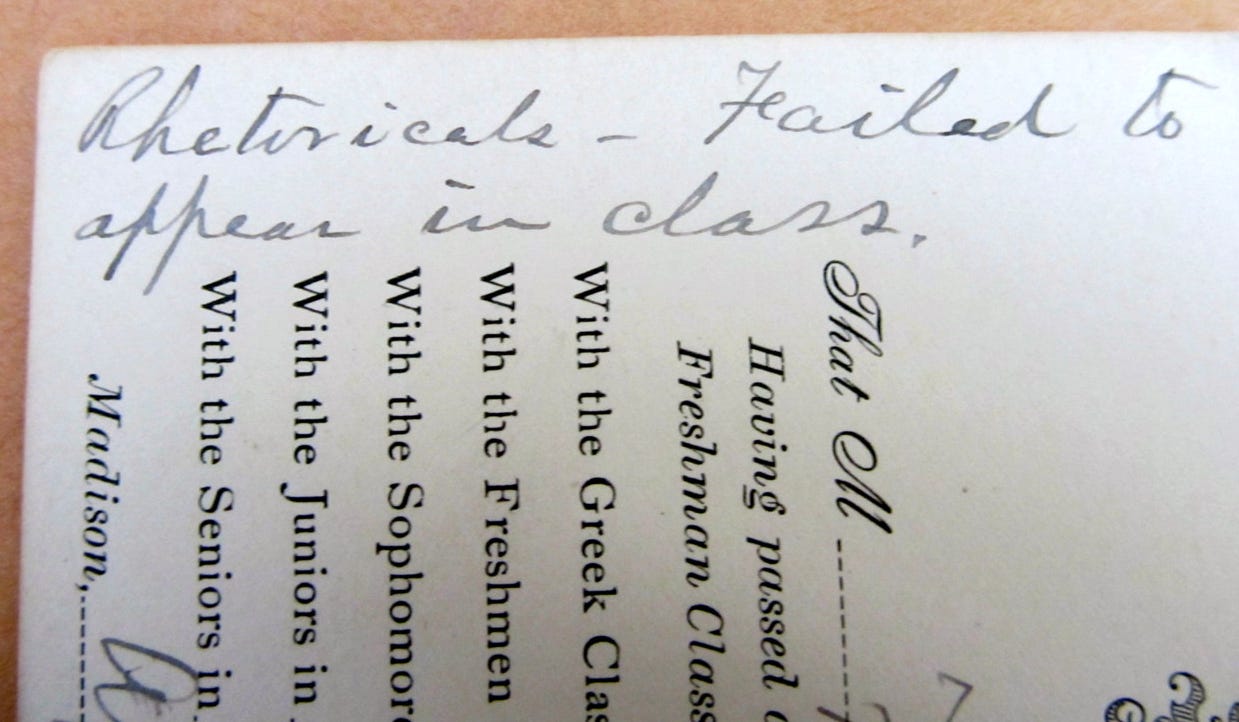 Rhetoricals - Failed to
appear in class.
That M
Having passed
Freshman Class
With the Greek Clas
With the Freshmen
With the Sophomore
With the Juniors in
With the Seniors in
Madison,